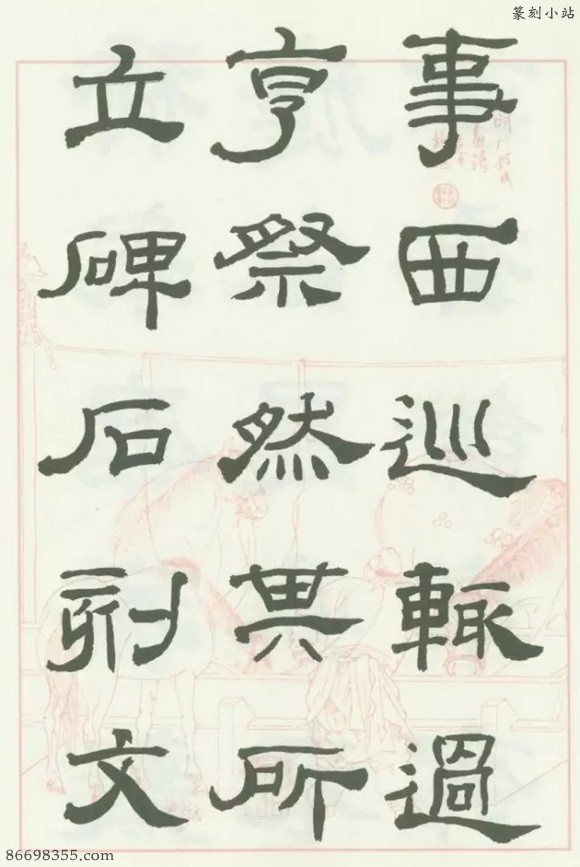 篆刻小站
事西巡輒過
亨祭然其所
立碑石刻文
86698355.com